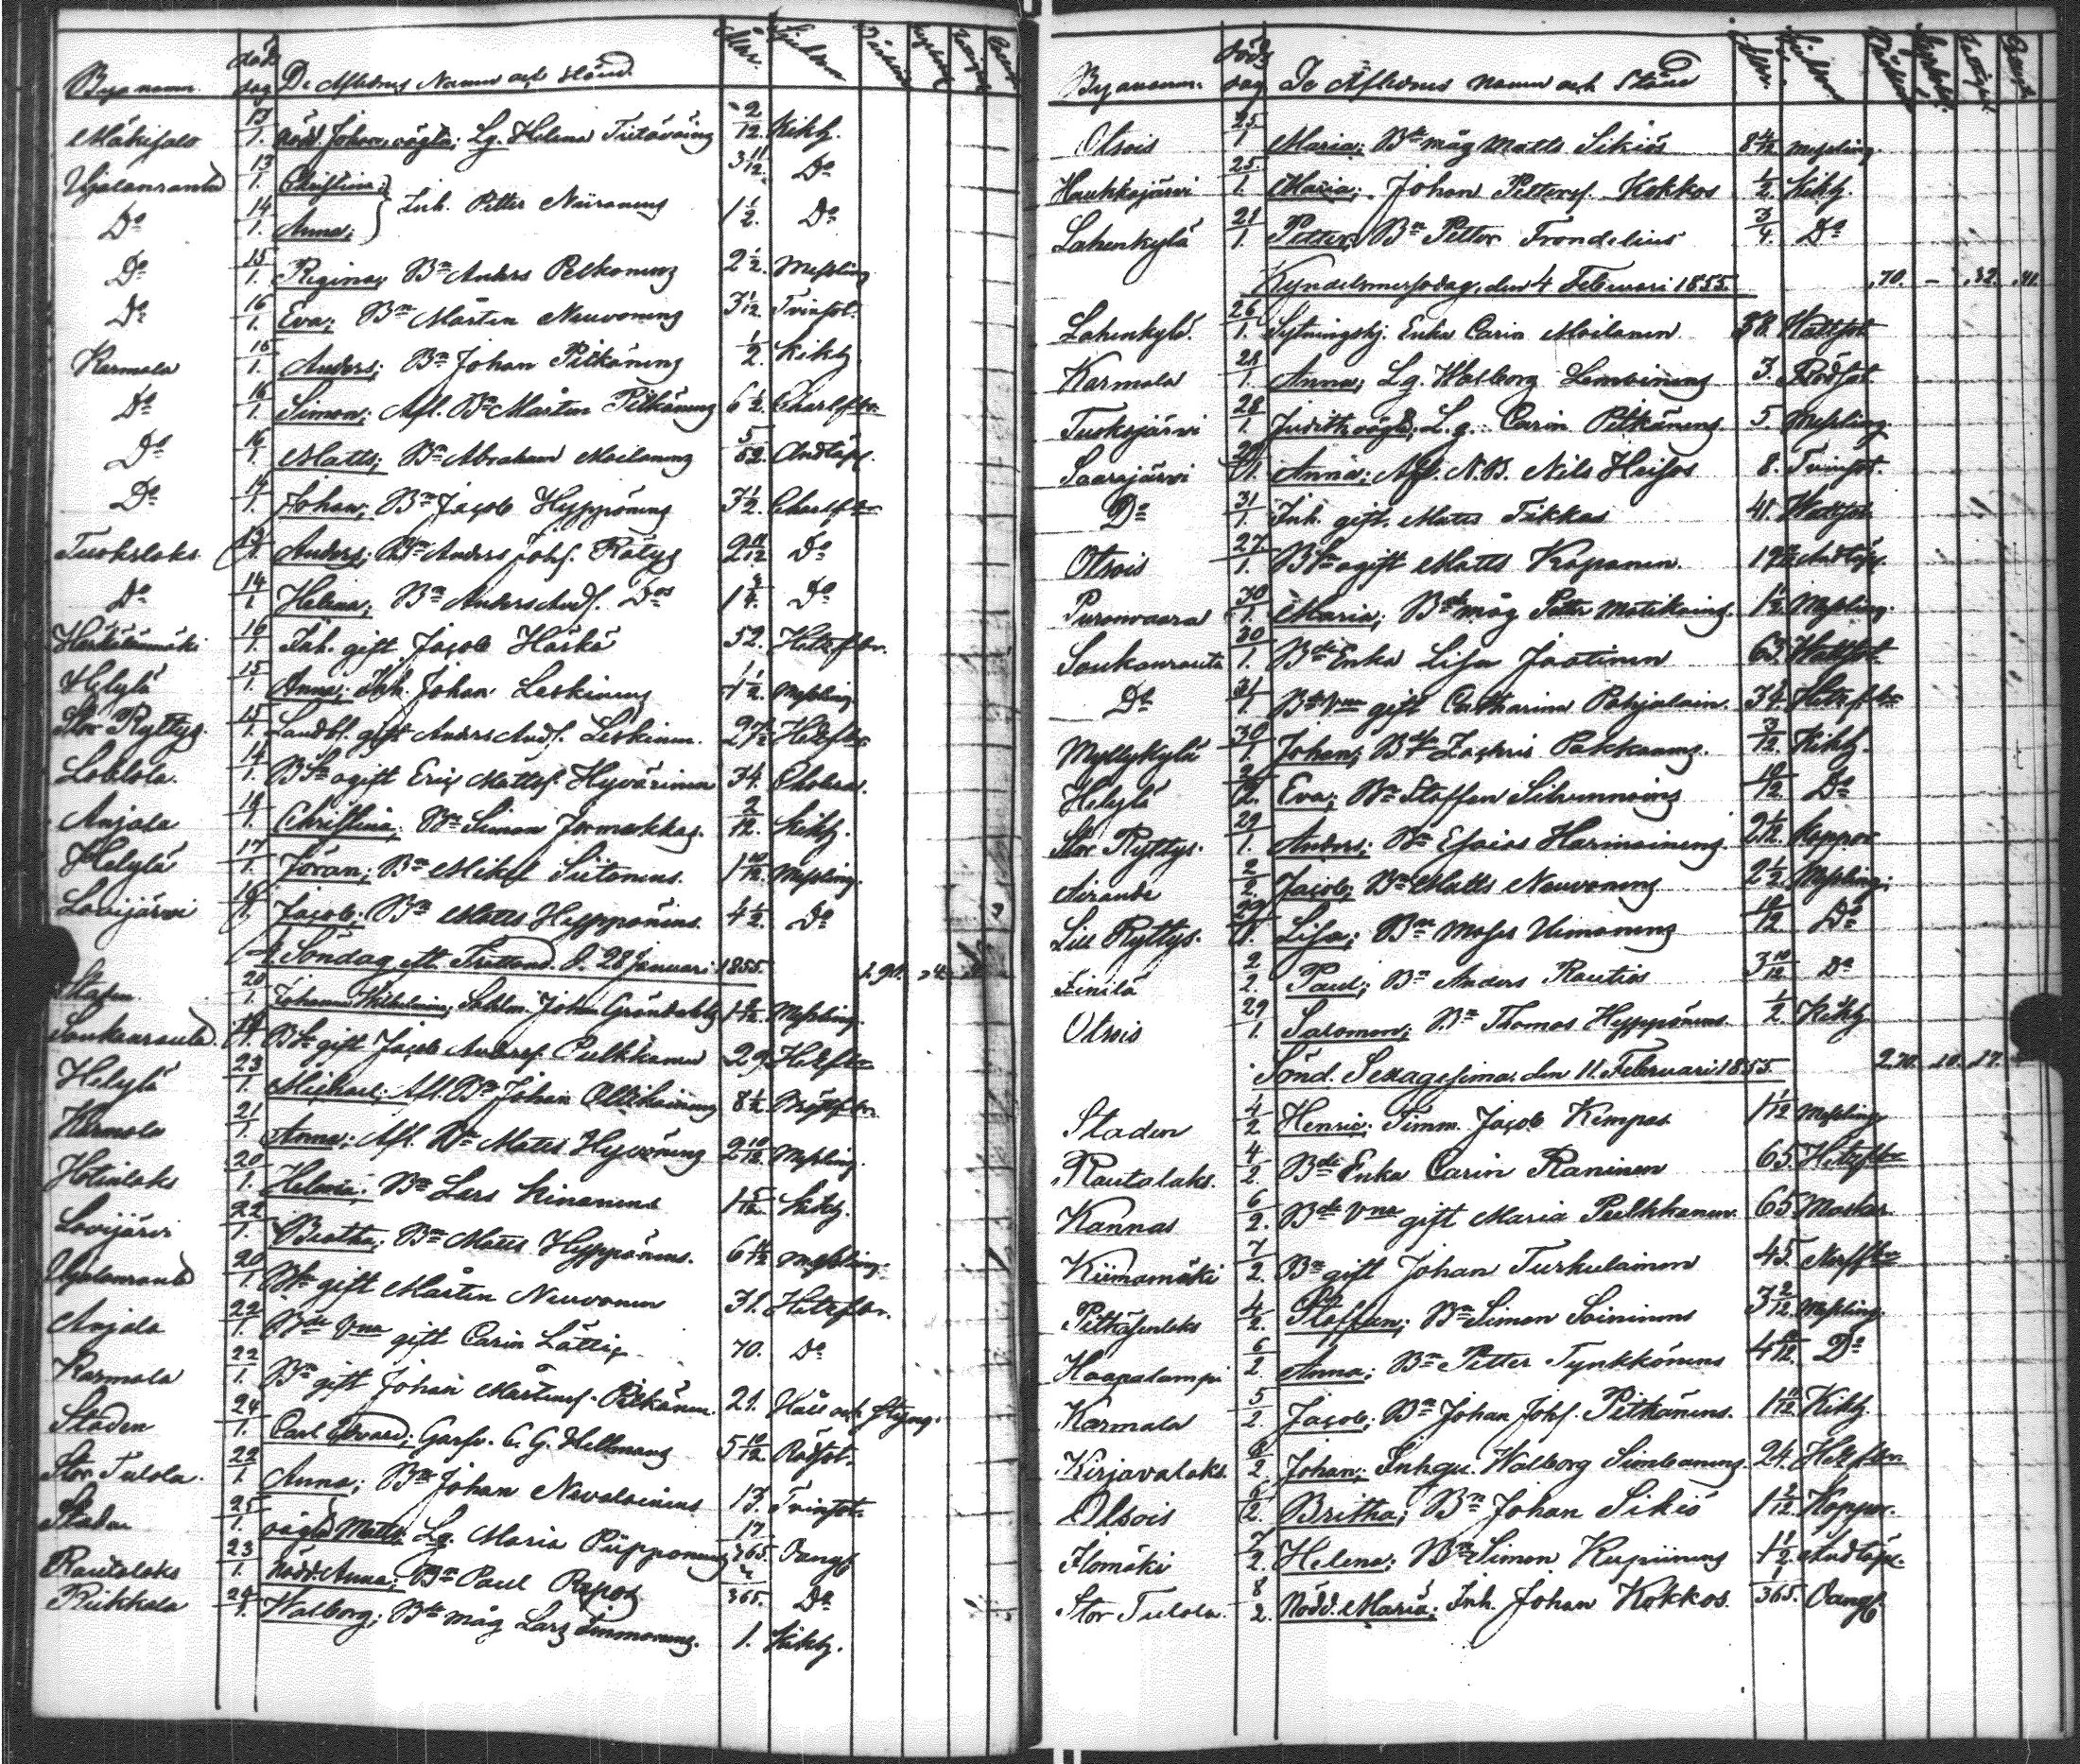 Byanamn. död dag De Aflednes Namn och stånd. Ålder. Sjukdom
Mäkisalo 13/1. Nödd. Johan, oägta; Lg. Helena Tiitäväing 2/12. Kikh.
Ujalanranta 13/1. Christina; 3 11/12. Do
Inh. Petter Niiranens
Do 14/1. Anna; 1 1/2. Do
Do 15/1. Regina; Bn Anders Pelkonens 2 1/2. Messling
Do 16/1. Eva; Bn Mårten Neuvonens 3 1/12. Tvinsot.
Karmala 15/1. Anders; Bn Johan Pitkänens 1/2. Kikh.
Do 16/1. Simon; Afl. Bn Mårten Pitkänens 6 1/2. Charlfbr.
Do 16/1. Matts; Bn Abraham Moilanens 5/52. Andtäpp.
Do 14/1. Johan; Bn Jacob Hyppönens 3 1/2. Charlfbr
Tuokslaks 13/1. Anders; Bn Anders Johs. Rätys 2 11/12 Do
Do 14/1. Helena; Bn Anders Ands. Dos 1 3/4. Do
Härkälänmäki 16/1. Inh. gift Jacob Härkä 52. Hetzfbr.
Helylä 15/1. Anna; Inh. Johan Leskinens 1 1/2. Messling
Stor Ryttys. 15/1. Landbl. gift Anders Ands. Leskinen. 27 1/2 Hetzfbr
Loktola. 14/1. Bsn ogift Eric Mattss. Hyvärinen 34. Cholera.
Anjala 18/1. Christina; Bn Simon Jormakkas. 2/12. Kikh.
Helylä 17/1. Jöran; Bn Mikel Siitonens. 1 10/12. Messling.
Lavijärvi 18/1. Jacob; Bn Matts Hyppönens. 4 1/2. Do
4 Söndag. ett. Trettond. d. 28 Januari 1855.
Staden 20/1. Johanna Wilhelmina; Sahlm. Johan Gröndahls Messling.
Soukanranta. Bde gift Jacob Anderss. Pulkkanen 29. Hetzfbr
Helylä 23/1. Michael; Afl. Bn Johan Ollikainens 8 1/2. Bröstfbr.
Karmala 21/1. Anna; Afl. Bn Matts Hyvönens 2 10/12. Messling.
Hotinlaks 20/1. Helena; Bn Lars Kinanens 1 5/12. Kikh.
Lavijärvi 22/1. Beatha; Bn Matts Hyppönens. Messling.
Ujalanranta 20/1. Bde gift Mårten Neuvonen 31. Hetzfbr.
Anjala 22/1. Bde Vna gift Carin Lättis 70. Do
Karmala 22/1. Bn gift Johan Mårtenss. Pitkänen. 21. Håll och styng.
Staden 24/1. Carl Edvard; Garfv. C. G. Hellmans 5 10/12. Rödsot.
Stor Tulola. 22/1. Anna; Bn Johan Nevalainens 13. Tvinsot.
Staden 25/1. oägta Matts; Lg. Maria Piipponens 17/365. Oangf
Rautalaks 23/1. Nödd. Anna; Bn Paul Repos 2/365. Do
Riekkala 24/1. Walborg; Bde måg Lars Immonens. 1. Kikh.
Byanamn. död dag De Aflednes namn och Stånd Ålder. Sjukdom.
Otsois 25/1 Maria; Bde måg Matts Sikiös 8 4/12 Messling.
Haukkajärvi 25/1. Maria; Johan Petterss. Kokkos 1/2. Kikh.
Lahenkylä 21/1. Petter; Bn Petter Trondelius 3/4. Do
Kyndelsmersodag, den 4 Februari 1855. .70. - .32. .41.
Lahenkylä. 26/1. Sytningshj. Enka Carin Moilanen 38. Wattsot
Karmala 28/1. Anna; Lg. Walborg Lembinens 3. Rödsot
Tuoksjärvi 28/1. Judith oägta; L.g. Carin Pitkänens 5. Messling.
Saarajärvi Anna; Afl. N.B. Nils Heisos 8. Tvinsot.
Do 31/1. Inh. gift. Matts Tikkas 41. Wattsot.
Otsois 27/1. Bsn ogift Matts Kaponen. Andtäpp.
Puronvaara 30/1. Maria; Bde måg Petter Matikains. 1 1/2. Messling.
Soukanranta 30/1. Bde Enka Lisa Jaatinen 63. Wattsot
Do 31/1. Bde Vna gift Catharina Pohjolain. 34. Hetzfbr
Myllykylä 30/1. Johan; Zachris Pakkanens. 3/12. Kikh.
Helylä Eva; Bn Staffan Sihvonens 10/12. Do
Stor Ryttys. 29/1. Anders; Bn Esaias Harmoinens. 2 1/12. Koppor
Airanda 2/2. Jacob; Bn Matts Neuvonens 2 1/2. Messling;
Lill Ryttys. Lisa; Bn Moses Uimonens 10/12. Do
Finilä 2/2. Paul; Bn Anders Rautios 3 10/12. Do
Otsois 29/1. Salomon; Bn Thomas Hyppönens. 1/2. Kikh
Sönd. Sexagesima, den 11. Februari 1855. 2.70. .10. .17.
Staden 4/2 Henric; Timm. Jacob Kempas 1 1/12 Messling.
Rautalaks. 4/2. Bde Enka Carin Raninen 65. Hetzfbr
Kannas 6/2. Bde Vna gift Maria Pulkkanen. 65. Maskar.
Kiimamäki 7/2. Bn gift Johan Turkulainen 45. Nerffbr
Pitkäsenlaks 4/2. Staffan; Bn Simon Soininens 3 2/12. Messling.
Haapalampi 6/2. Anna; Bn Petter Tynkkönens Do
Karmala 5/2. Jacob; Bn Johan Johs. Pitkänens. 1 10/12 Kikh.
Kirjavalaks. 6/2. Johan; Inhqv. Walborg Simbanens. 24. Hetzfbr
Otsois 6/2. Britha; Bn Johan Sikiö 1 2/12 Koppor.
Ilomäki 7/2. Helena; Bn Simon Kupiinens 1 1/2. Andtäpp.
Stor Tulola. 8/2. Nödd. Maria; Inh. Johan Kokkos. 1/365. Oangf.